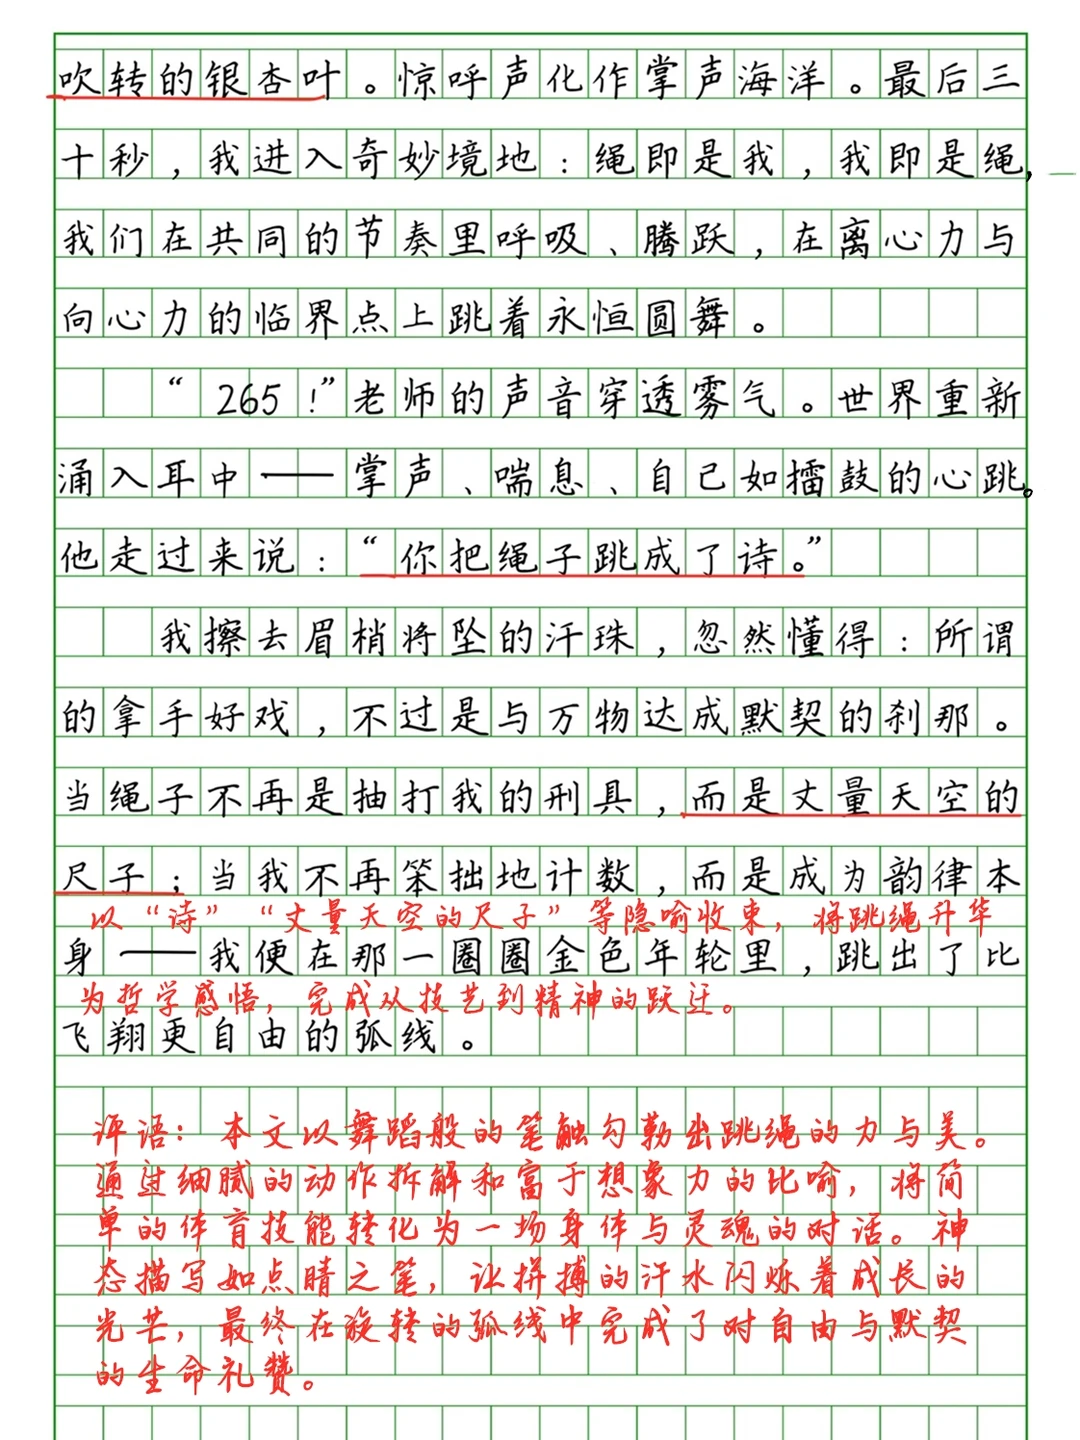 吹转的银杏叶。惊呼声化作掌声海洋。最后三
十秒，我进入奇妙境地：绳即是我，我即是绳，
我们在共同的节奏里呼吸、腾跃，在离心力与
向心力的临界点上跳着永恒圆舞。
“265！”老师的声音穿透雾气。世界重新
涌入耳中——掌声、喘息、自己如擂鼓的心跳。
他走过来说：“你把绳子跳成了诗。”
我擦去眉梢将坠的汗珠，忽然懂得：所谓
的拿手好戏，不过是与万物达成默契的刹那。
当绳子不再是抽打我的刑具，而是丈量天空的
尺子；当我不再笨拙地计数，而是成为韵律本
以“诗”“丈量天空的尺子”等隐喻收束，将跳绳升华
身——我便在那一圈圈金色年轮里，跳出了比
为哲学感悟，完成从技艺到精神的跃迁。
飞翔更自由的弧线。
评语：本文以舞蹈般的笔触勾勒出跳绳的力与美。
通过细腻的动作拆解和富于想象力的比喻，将简
单的体育技能转化为一场身体与灵魂的对话。神
态描写如点睛之笔，让拼搏的汗水闪烁着成长的
光芒，最终在旋转的弧线中完成了对自由与默契
的生命礼赞。